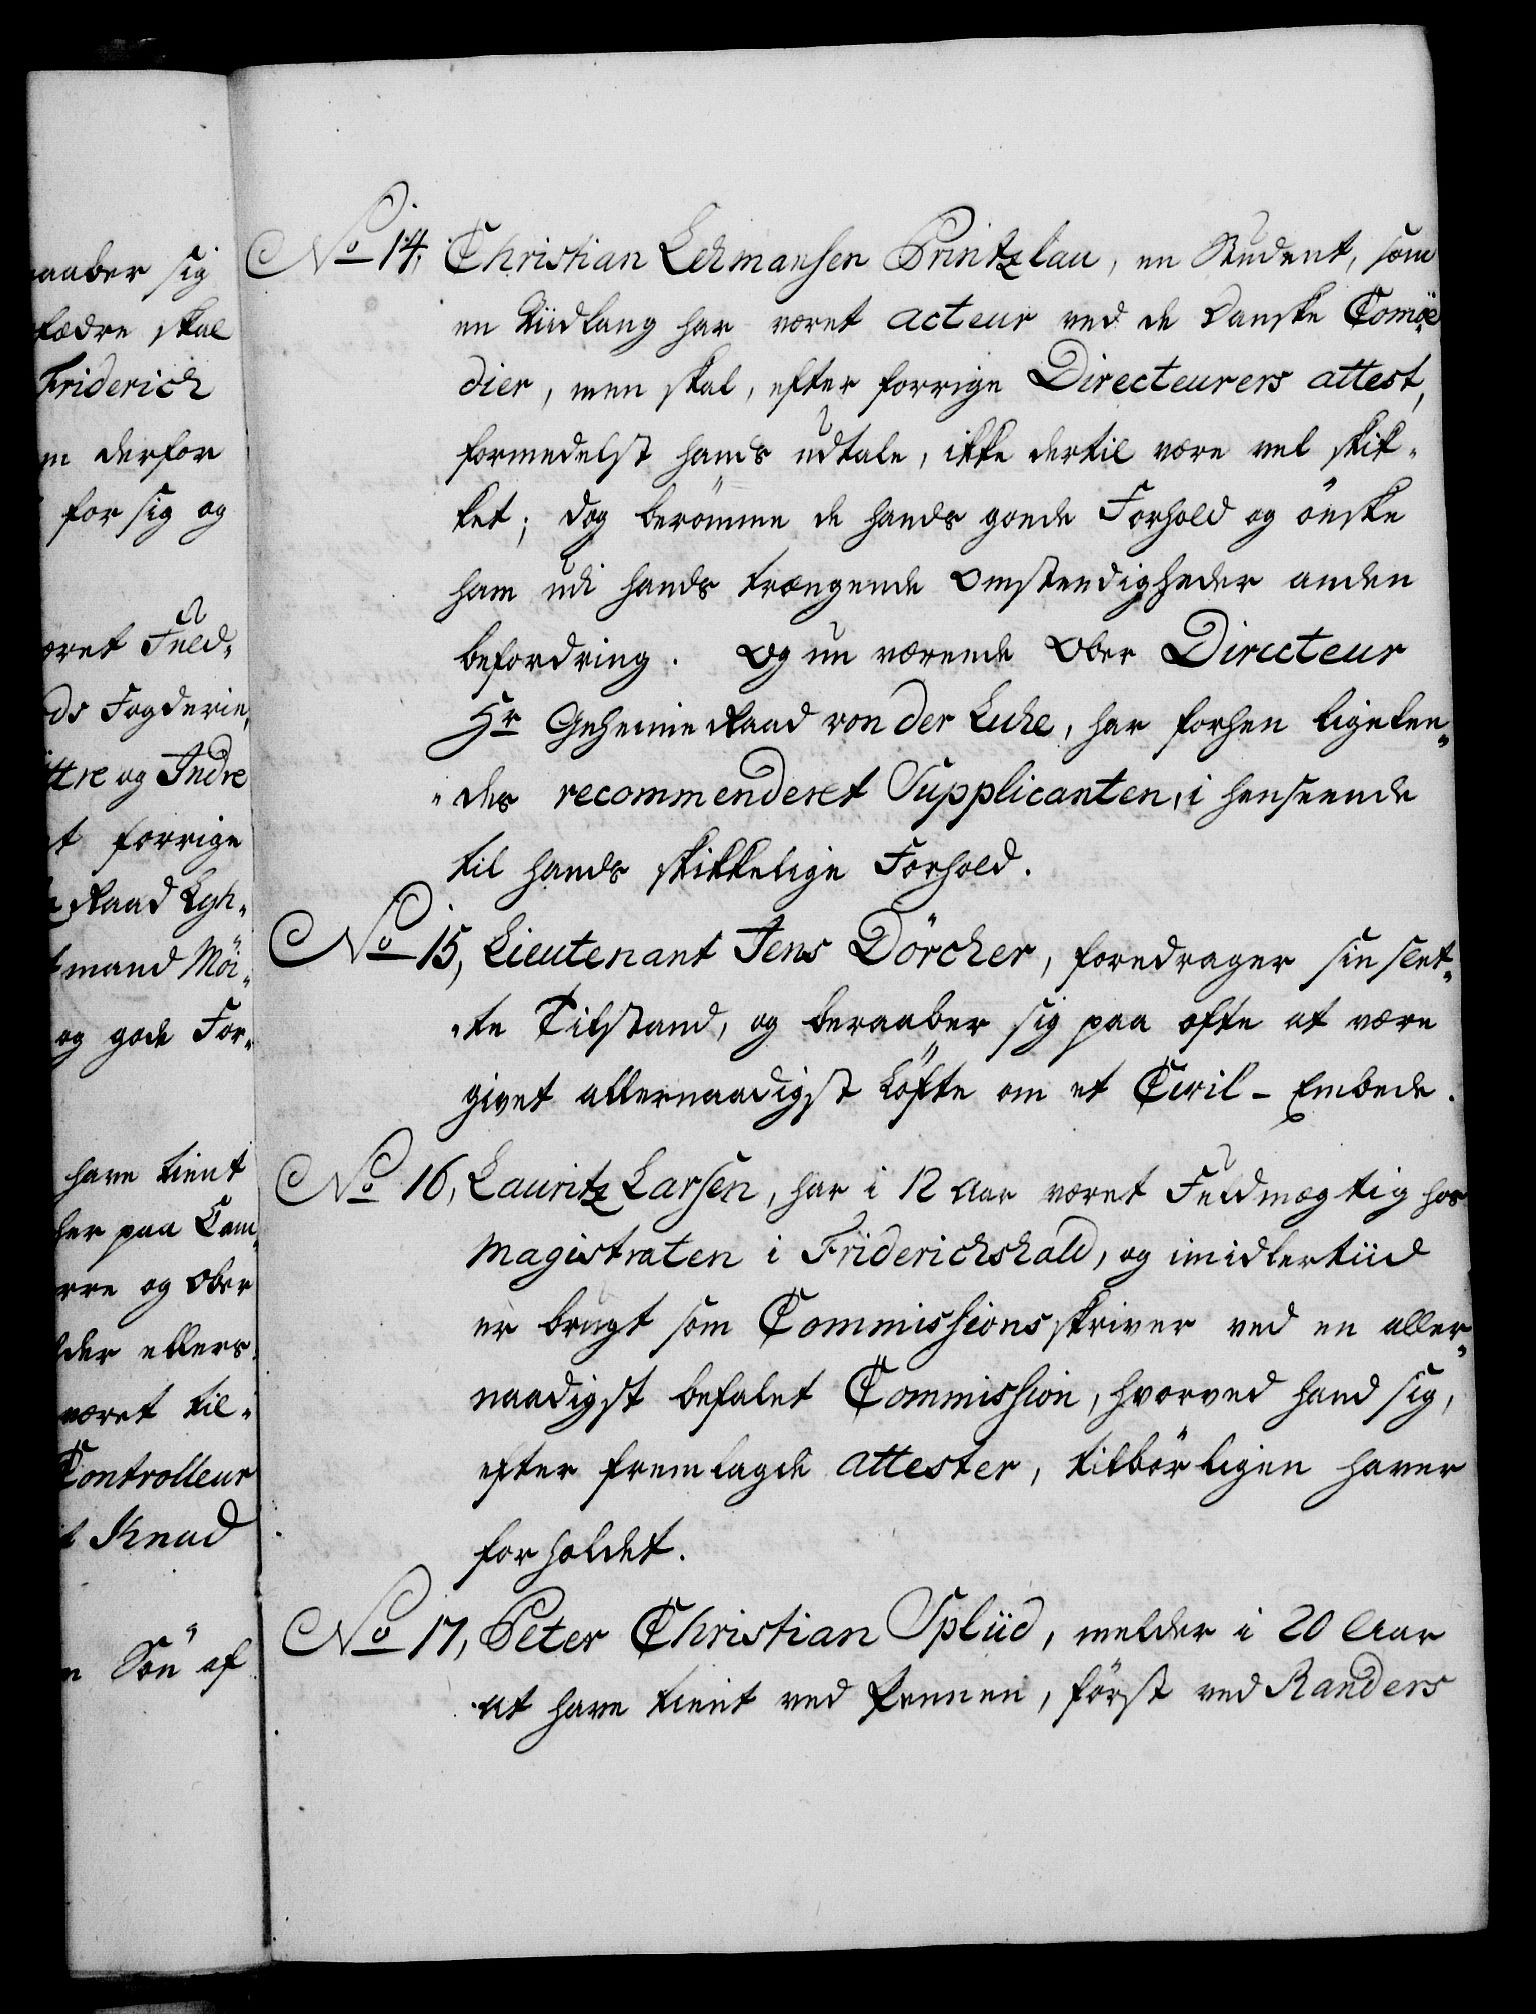 aaber sig
fædre skal
Friderich
m derfor
for sig og
æret Fuld-
ds Fogderie,
ttre og Andre
t forrige
Raad Lyh-
mand Möi-
og gode For-
have tient
her paa Cam-
rre og Ober
lder ellers
været til-
Controlleur
t Knud
n Sön af
No 14, Christian Lehmansen Printzlau, en Student, som
en tiidlang har været acteur ved de Danske Comoe-
dier, men skal, efter forrige Directeurers attest,
formedelst hands udtale, ikke dertil være vel skik-
ket; dog berömme de hands goede Forhold og önske
ham udi hands trængende Omstendigheder anden
befordring. Og nu værende Ober Directeur
Hr Geheime Raad von der Luhe, har forhen ligeleu-
-des recommenderet Supplicanten, i henseende
til hands skikkelige Forhold.
No 15, Lieutenant Jens Dörcher, foredrager sin slet-
-te Tilstand, og beraaber sig paa ofte at være
givet allernaadigst Löfte om et Civil-Embede.
No 16, Lauritz Larsen, har i 12 Aar været Fuldmægtig hos
Magistraten i Friderichshald, og imidlertiid
er brugt som Commissionsskriver ved en aller-
naadigst befalet Commission, hvorved hand sig,
efter fremlagde attester, tilbörligen haver
forholdet.
No 17, Peter Christian Spliid, melder i 20 Aar
at have tient ved Pennen, först ved Randers